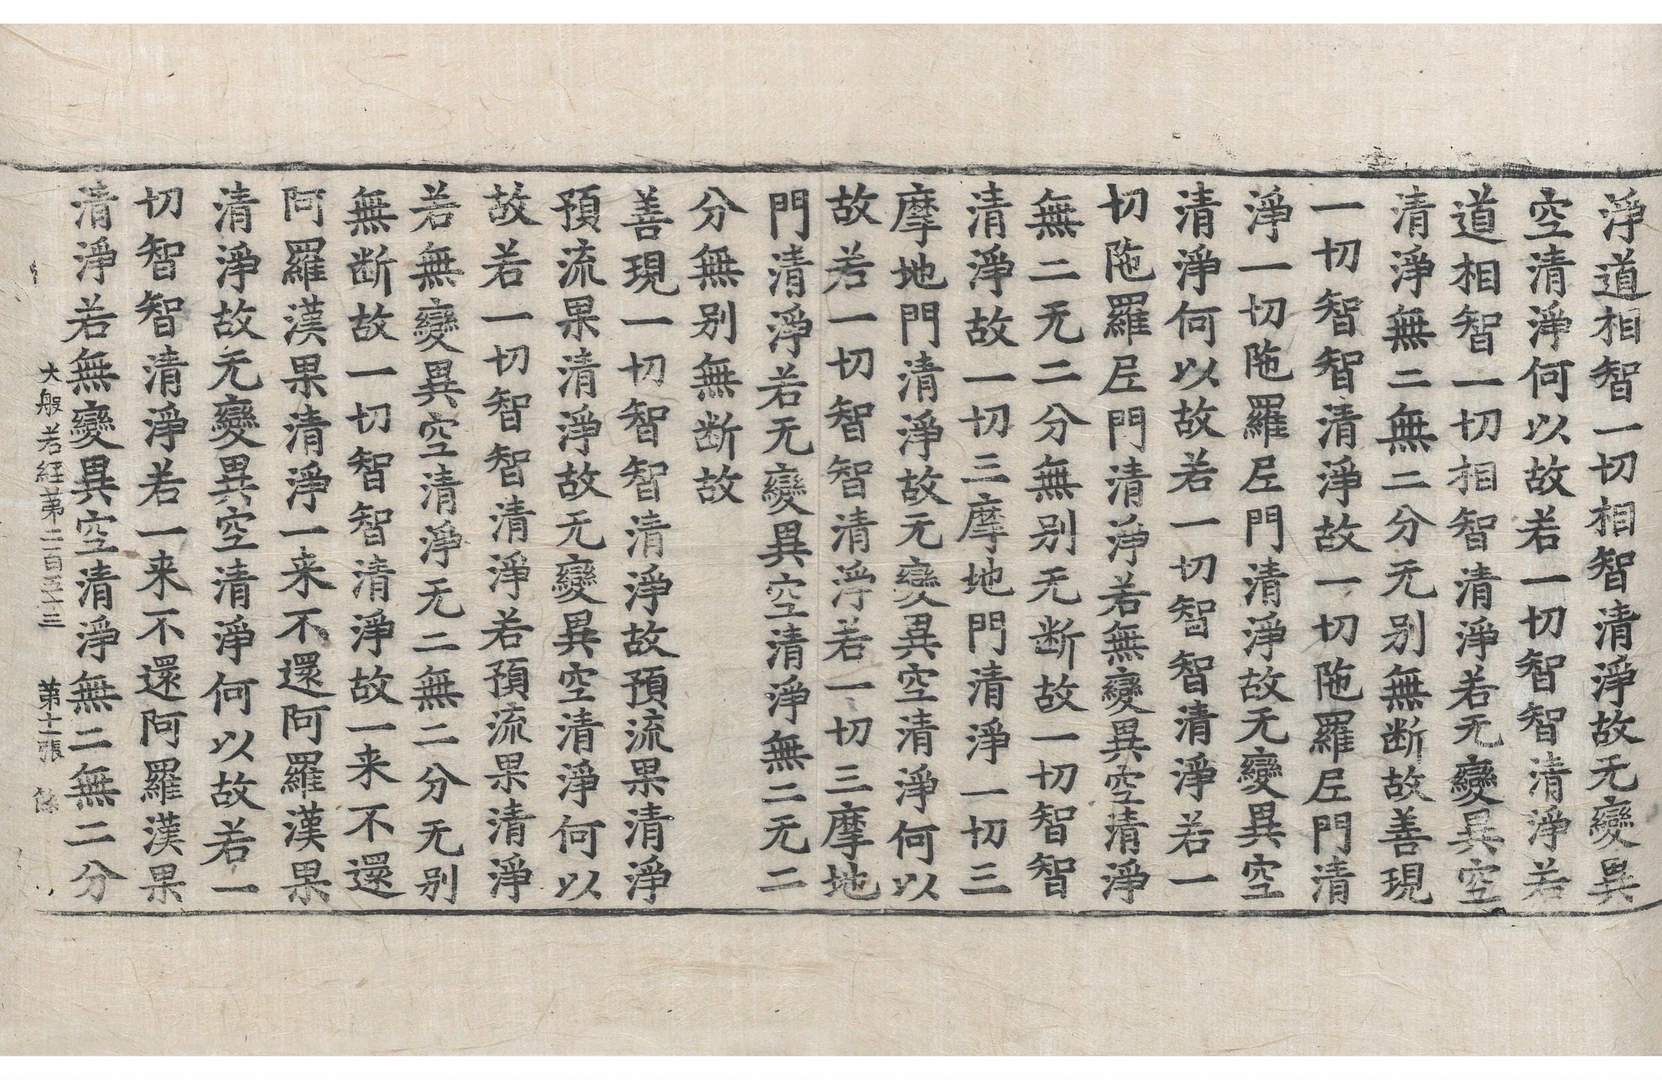 淨道相智一切相智清淨故无變異
空清淨何以故若一切智智清淨若
道相智一切相智清淨若无變異空
清淨無二無二分无别無断故善現
一切智智清淨故一切陁羅尼門清
淨一切陁羅尼門清淨故无變異空
清淨何以故若一切智智清淨若一
切陁羅尼門清淨若無變異空清淨
無二无二分無别无断故一切智智
清淨故一切三摩地門清淨一切三
摩地門清淨故无變異空清淨何以
故若一切智智清淨若一切三摩地
門清淨若无變異空清淨無二无二
分無别無断故
善現一切智智清淨故預流果清淨
預流果清淨故无變異空清淨何以
故若一切智智清淨若預流果清淨
若無變異空清淨无二無二分无别
無断故一切智智清淨故一来不還
阿羅漢果清淨一来不還阿羅漢果
清淨故无變異空清淨何以故若一
切智智清淨若一来不還阿羅漢果
清淨若無變異空清淨無二無二分
大般若経第二百五十三 第十一張